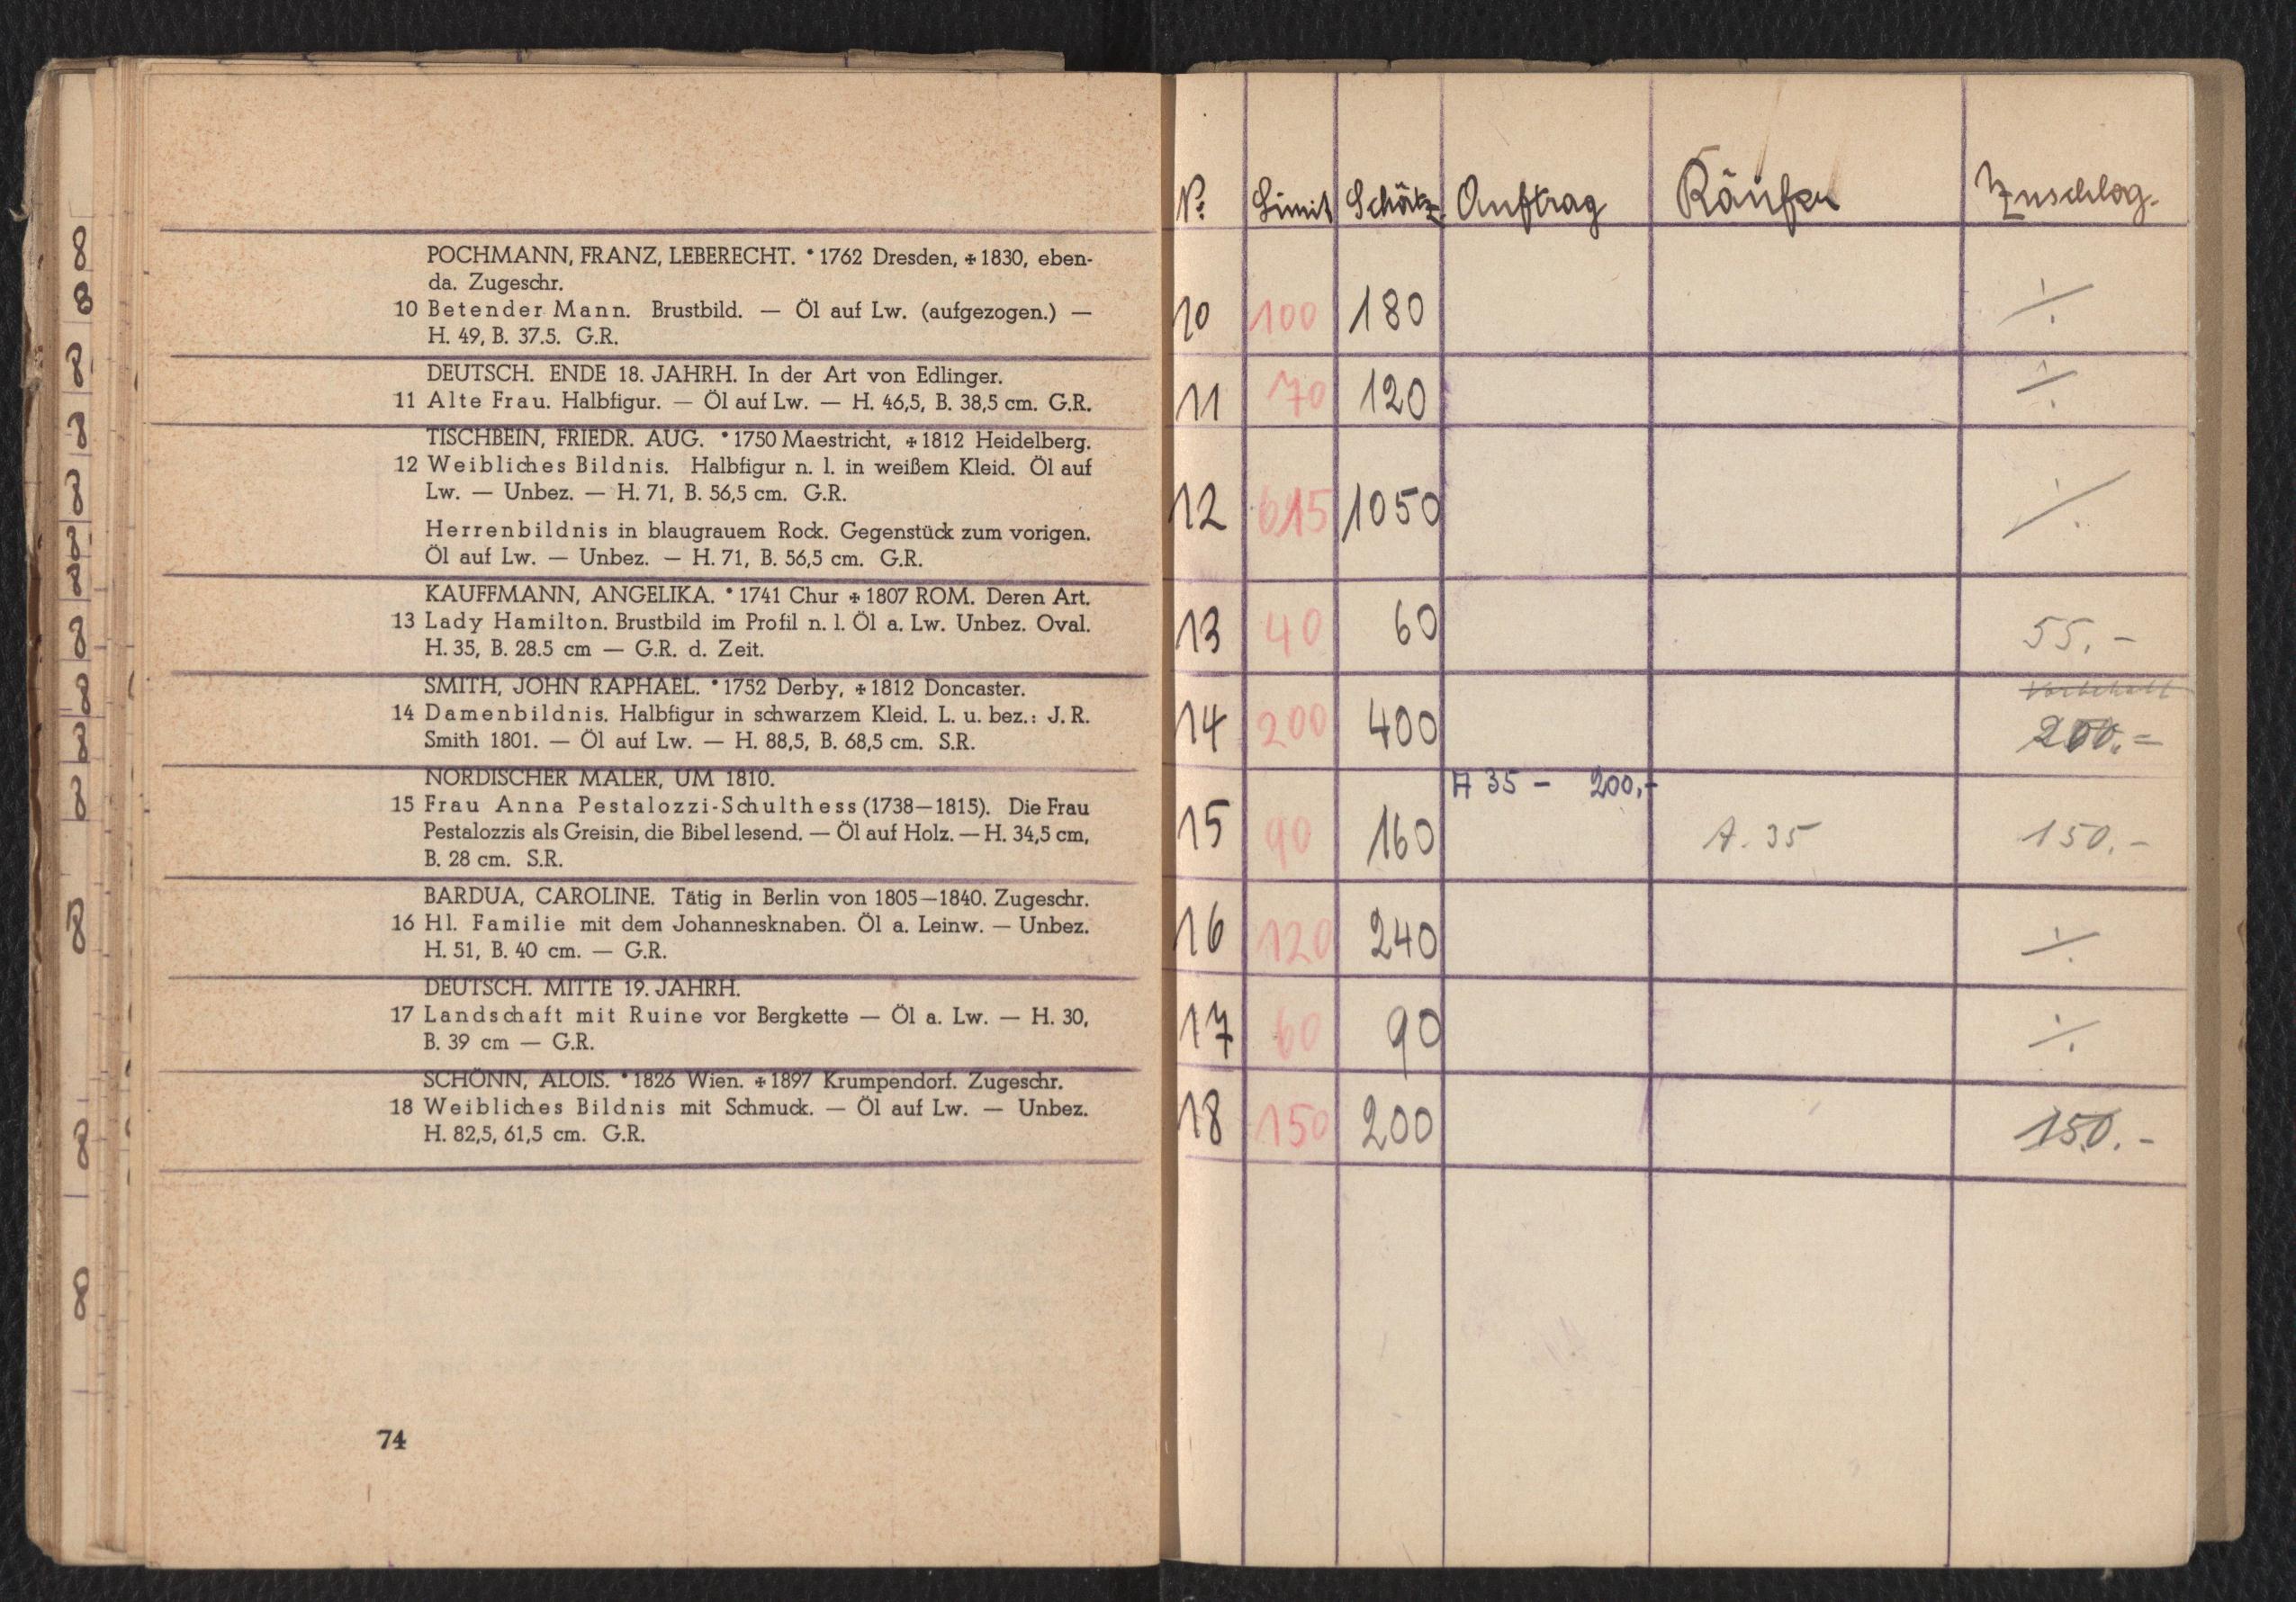 POCHMANN, FRANZ, LEBERECHT. * 1762 Dresden, ✠ 1830, eben-
da. Zugeschr.
10 Betender Mann. Brustbild. — Öl auf Lw. (aufgezogen.) —
H. 49, B. 37.5. G.R.
DEUTSCH. ENDE 18. JAHRH. In der Art von Edlinger.
11 Alte Frau. Halbfigur. — Öl auf Lw. — H. 46,5, B. 38,5 cm. G.R.
TISCHBEIN, FRIEDR. AUG. * 1750 Maestricht, ✠ 1812 Heidelberg.
12 Weibliches Bildnis. Halbfigur n. l. in weißem Kleid. Öl auf
Lw. — Unbez. — H. 71, B. 56,5 cm. G.R.
Herrenbildnis in blaugrauem Rock. Gegenstück zum vorigen.
Öl auf Lw. — Unbez. — H. 71, B. 56,5 cm. G.R.
KAUFFMANN, ANGELIKA. * 1741 Chur ✠ 1807 ROM. Deren Art.
13 Lady Hamilton. Brustbild im Profil n. l. Öl a. Lw. Unbez. Oval.
H. 35, B. 28.5 cm — G.R. d. Zeit.
SMITH, JOHN RAPHAEL. * 1752 Derby, ✠ 1812 Doncaster.
14 Damenbildnis. Halbfigur in schwarzem Kleid. L. u. bez.: J. R.
Smith 1801. — Öl auf Lw. — H. 88,5, B. 68,5 cm. S.R.
NORDISCHER MALER, UM 1810.
15 Frau Anna Pestalozzi-Schulthess (1738—1815). Die Frau
Pestalozzis als Greisin, die Bibel lesend. — Öl auf Holz. — H. 34,5 cm,
B. 28 cm. S.R.
BARDUA, CAROLINE. Tätig in Berlin von 1805—1840. Zugeschr.
16 Hl. Familie mit dem Johannesknaben. Öl a. Leinw. — Unbez.
H. 51, B. 40 cm. — G.R.
DEUTSCH. MITTE 19. JAHRH.
17 Landschaft mit Ruine vor Bergkette — Öl a. Lw. — H. 30,
B. 39 cm — G.R.
SCHÖNN, ALOIS. * 1826 Wien. ✠ 1897 Krumpendorf. Zugeschr.
18 Weibliches Bildnis mit Schmuck. — Öl auf Lw. — Unbez.
H. 82,5, 61,5 cm. G.R.
74
N: Limit Schätz. Auftrag Käufer Zuschlag.
10 100 180 ÷
11 70 120 ÷
12 1050 ÷
13 40 60 55.-
Vorbehalt
14 200 400 200.=
A 35 – 200,-
15 90 160 A. 35 150.-
16 120 240 ÷
17 60 90 ÷
18 150 200 150.-